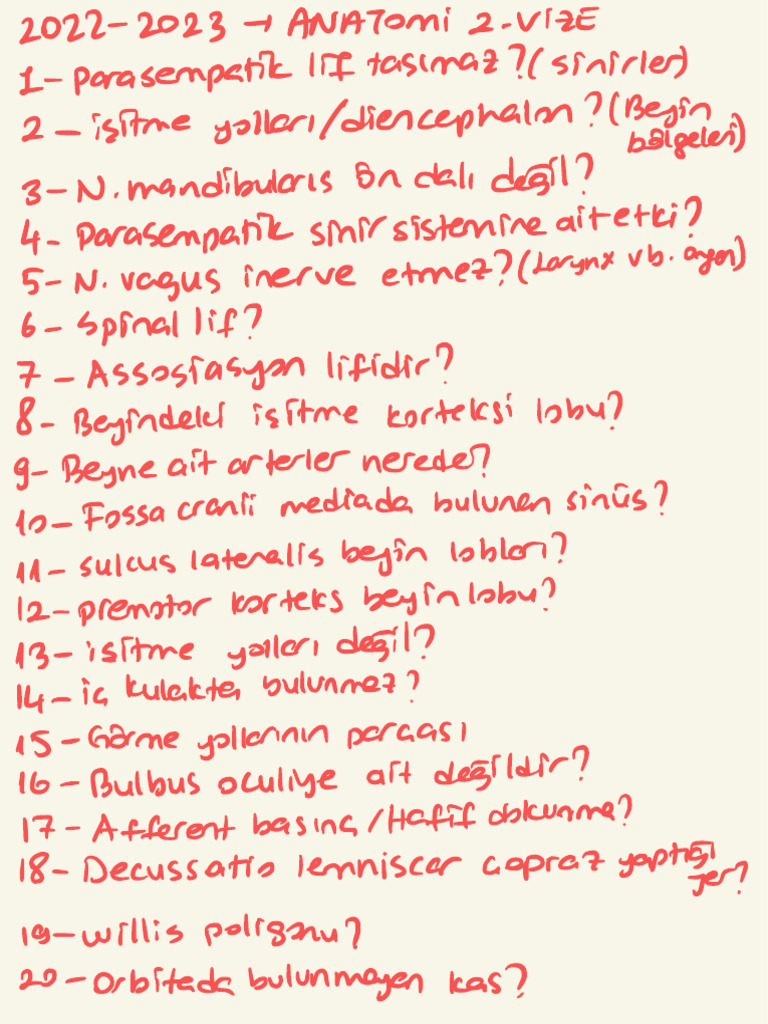 2022-2023 → ANATOMİ 2.VİZE
1- Parasempatik lif taşımaz? (sinirler)
2- işitme yolları/diencephalon? (Beyin bölgeleri)
3- N. mandibularis ön dalı değil?
4- Parasempatik sinir sistemine ait etki?
5- N. vagus inerve etmez? (Larynx vb. organ)
6- Spinal lif?
7- Assosiasyon lifidir?
8- Beyindeki işitme korteksi lobu?
9- Beyne ait arterler nerede?
10- Fossa cranii mediada bulunan sinüs?
11- sulcus lateralis beyin lobları?
12- premotor korteks beyin lobu?
13- işitme yolları değil?
14- iç kulakta bulunmaz?
15- Görme yollarının parçası
16- Bulbus oculiye ait değildir?
17- Afferent basınç/Hafif dokunma?
18- Decussatio lemniscar çapraz yaptığı yer?
19- willis poligonu?
20- Orbitada bulunmayan kas?